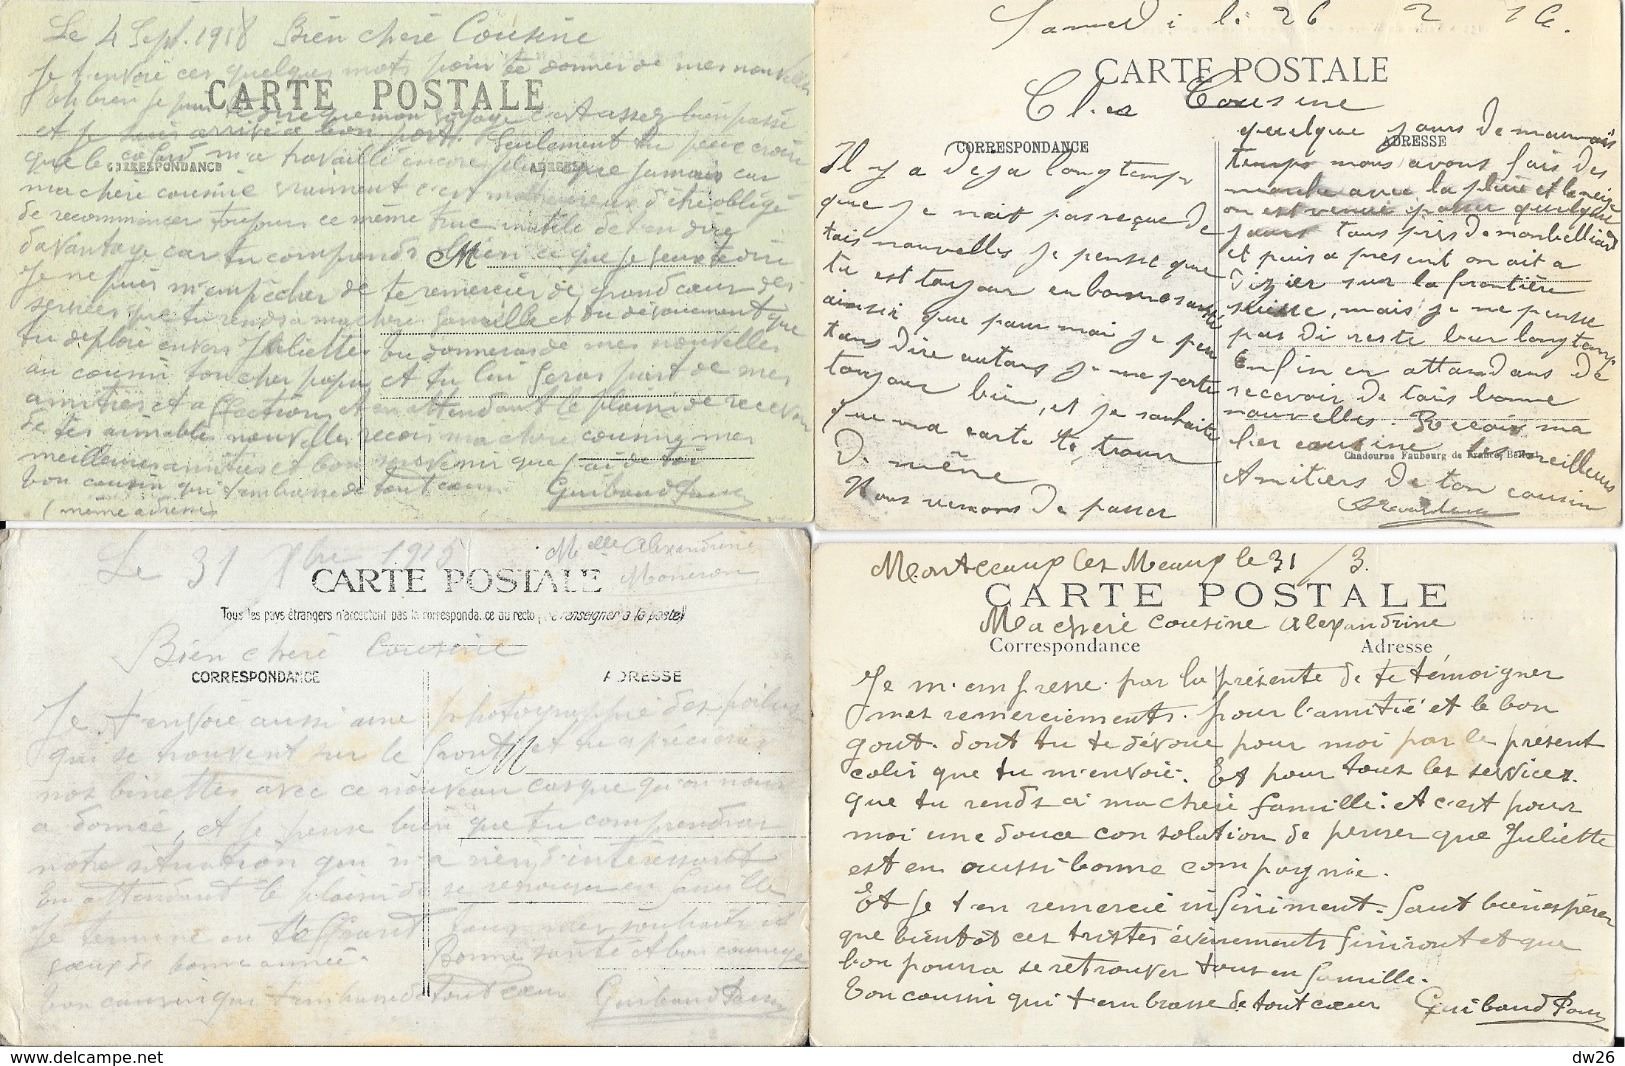 Le 4 Sept. 1918 Bien cheré Cousine
Je t'envoie ces quelques mots pour te donner de mes nouvelles
CARTE POSTALE
Eh bien je puis te dire que mon voyage c'est assez bien passé
et je suis arrivé a bon port. Seulement tu peux croire
que le cafard m'a travaillé encore plus que jamais car
CORRESPONDANCE
ADRESSE
ma cheré cousine vraiment c'est malheureux d'être obligé
de recommencer toujours ce même truc inutile de t'en dire
davantage car tu comprends bien ce que je veux te dire
M
Je ne puis m'empêcher de te remercier de grand cœur des
services que tu rends a ma chere famille et du dévouement que
tu deploie envers Juliette. tu donneras de mes nouvelles
au cousin ton cher papa, et tu lui feras part de mes
amitiés et affections et en attendant le plaisir de recevoir
de tes aimables nouvelles recois ma chere cousine mes
meilleures amitiés et bon souvenir que j'ai de toi
ton cousin qui t'embrasse de tout cœur Guibaud
(même adresse
Samedi le 26 2 16.
CARTE POSTALE
Cousine
CORRESPONDANCE
ADRESSE
Il y a Deja longtemps
que je nait pas reçue de
tais nouvelles je pensse que
tu est toujour en bonne santé
ainssi que pour moi je peu
tans dire autans je me porte
toujour bien, et je souhaite
que ma carte te, trouve
De même
Nous venons de passer
quelque jours De mauvais
temps nous avons fais des
marche avec la pluie et la neige
on est venue passer quelque
jours tous pres De monbelliard
et puis a present on ait a
sur la frontière
suisse, mais je ne pensse
pas Di reste bien longtemps
Enfin en attandans De
recevoir De tais bonne
nouvelles. Recoix ma
cher cousine les meilleurs
Chadourne Faubourg de France, Belfort
Amitiers De ton cousin
Le 31 Xbre
Melle Alexandrine
CARTE POSTALE
Tous les pays étrangers n'acceptent pas la correspondance au recto (se renseigner à la poste)
Bien cheré Cousine
CORRESPONDANCE
ADRESSE
Je t'envoie aussi une photographie des poilus
qui se trouvent sur le front, et tu apprecieras
M
nos binettes avec ce nouveau casque qu'on nous
a donnée, et je pense bien que tu comprendras
notre situation qui n'a rien d'intéressant
En attendant le plaisir de se retrouver en famille
Je termine en te offrant tous mes souhaits et
vœux de bonne année. Bonne santé et bon courage
ton cousin qui t'embrasse de tout cœur Guibaud
Montceaux les Meaux le 31/3.
CARTE POSTALE
Ma cheré cousine Alexandrine
Correspondance
Adresse
Je m'empresse par la présente de te témoigner
mes remerciements. pour l'amitié et le bon
gout. dont tu te dévoue pour moi par le présent
colis que tu m'envoie. Et pour tous les services.
que tu rends a ma cheré famille. Et c'est pour
moi une douce consolation de penser que Juliette
est en aussi bonne compagnie.
Et je t'en remercie infiniment. faut bien espérer
que bientôt ces tristes évènements finiront et que
l'on pourra se retrouver tous en famille.
ton cousin qui t'embrasse de tout cœur Guibaud
dw26